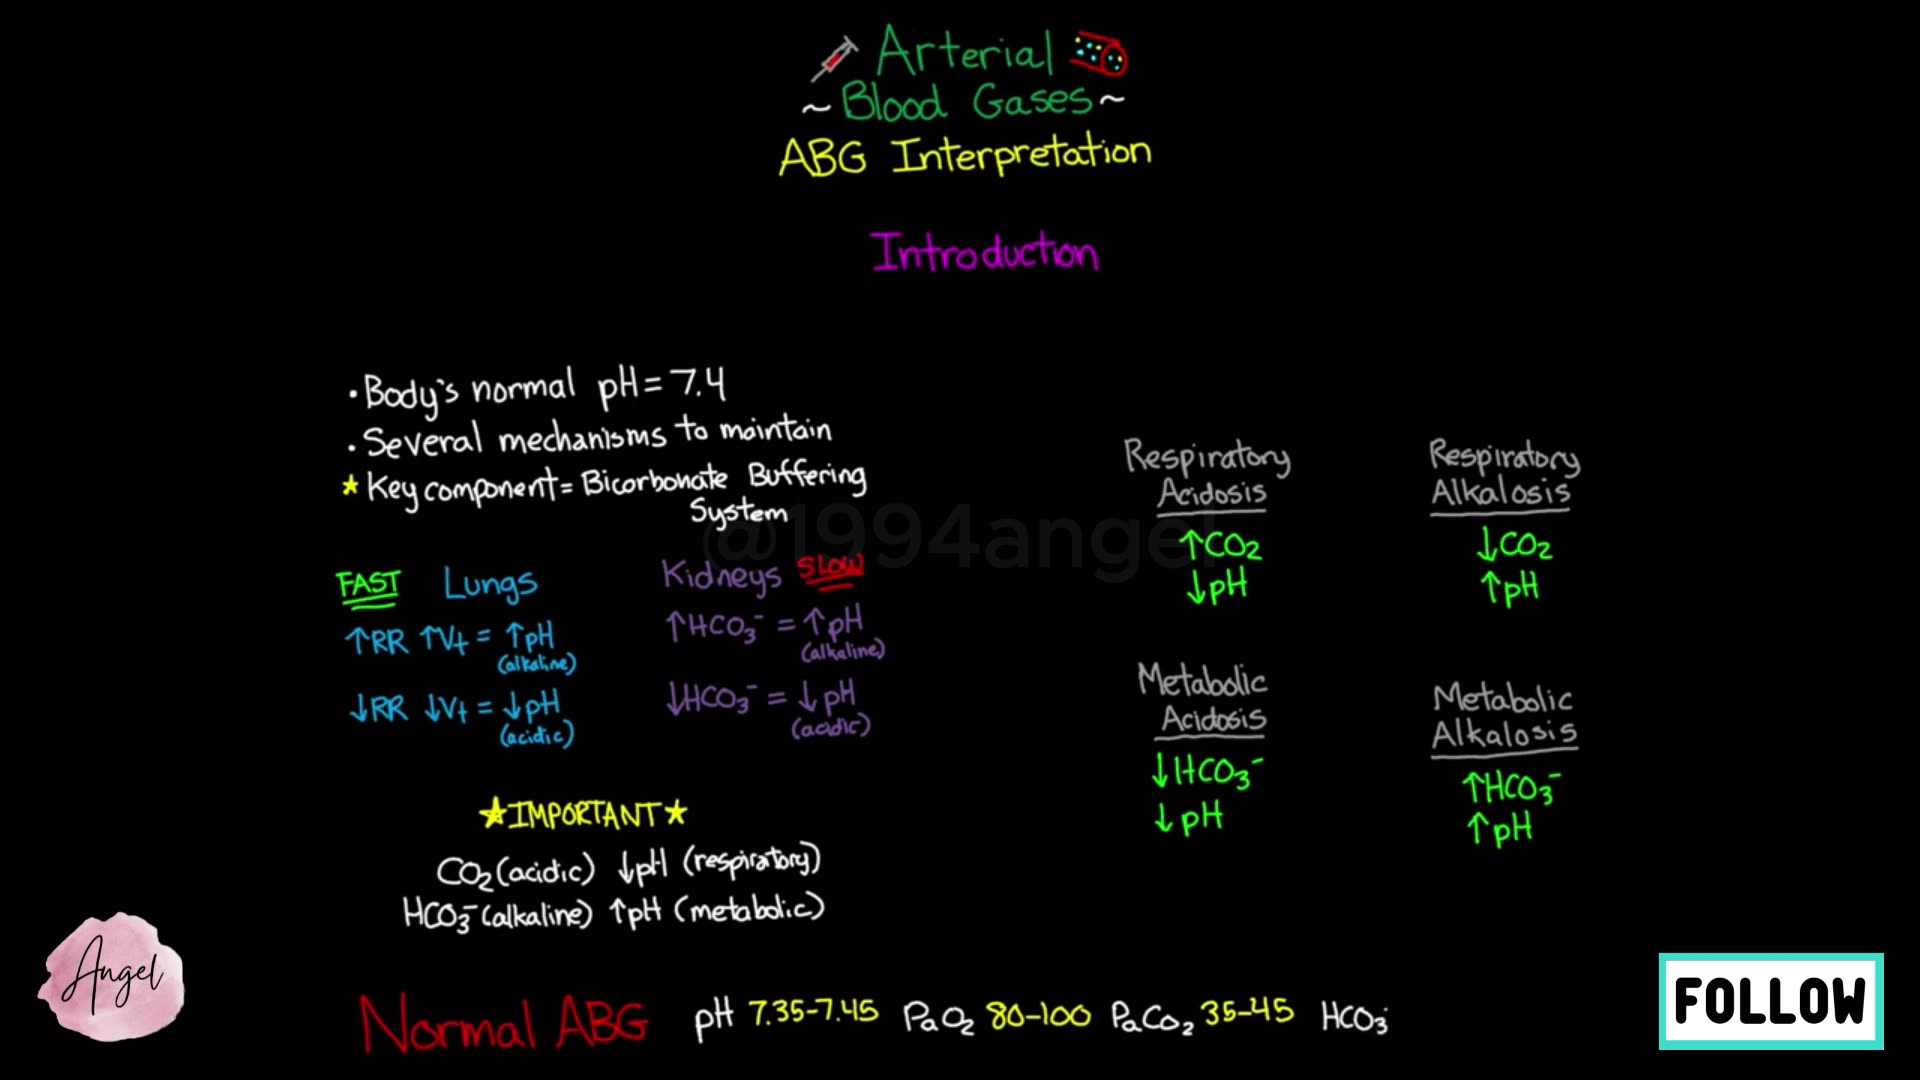 Arterial
~Blood Gases~
ABG Interpretation
Introduction
• Body's normal pH = 7.4
• Several mechanisms to maintain
★ Key component = Bicorbonate Buffering
System
FAST Lungs
↑RR ↑Vt = ↑pH
(alkaline)
↓RR ↓Vt = ↓pH
(acidic)
Kidneys SLOW
↑HCO₃⁻ = ↑pH
(alkaline)
↓HCO₃⁻ = ↓pH
(acidic)
★IMPORTANT★
CO₂ (acidic) ↓pH (respiratory)
HCO₃⁻ (alkaline) ↑pH (metabolic)
Respiratory
Acidosis
↑CO₂
↓pH
Respiratory
Alkalosis
↓CO₂
↑pH
Metabolic
Acidosis
↓HCO₃⁻
↓pH
Metabolic
Alkalosis
↑HCO₃⁻
↑pH
@1994angel
Normal ABG pH 7.35-7.45 PaO₂ 80-100 PaCO₂ 35-45 HCO₃
Angel
FOLLOW